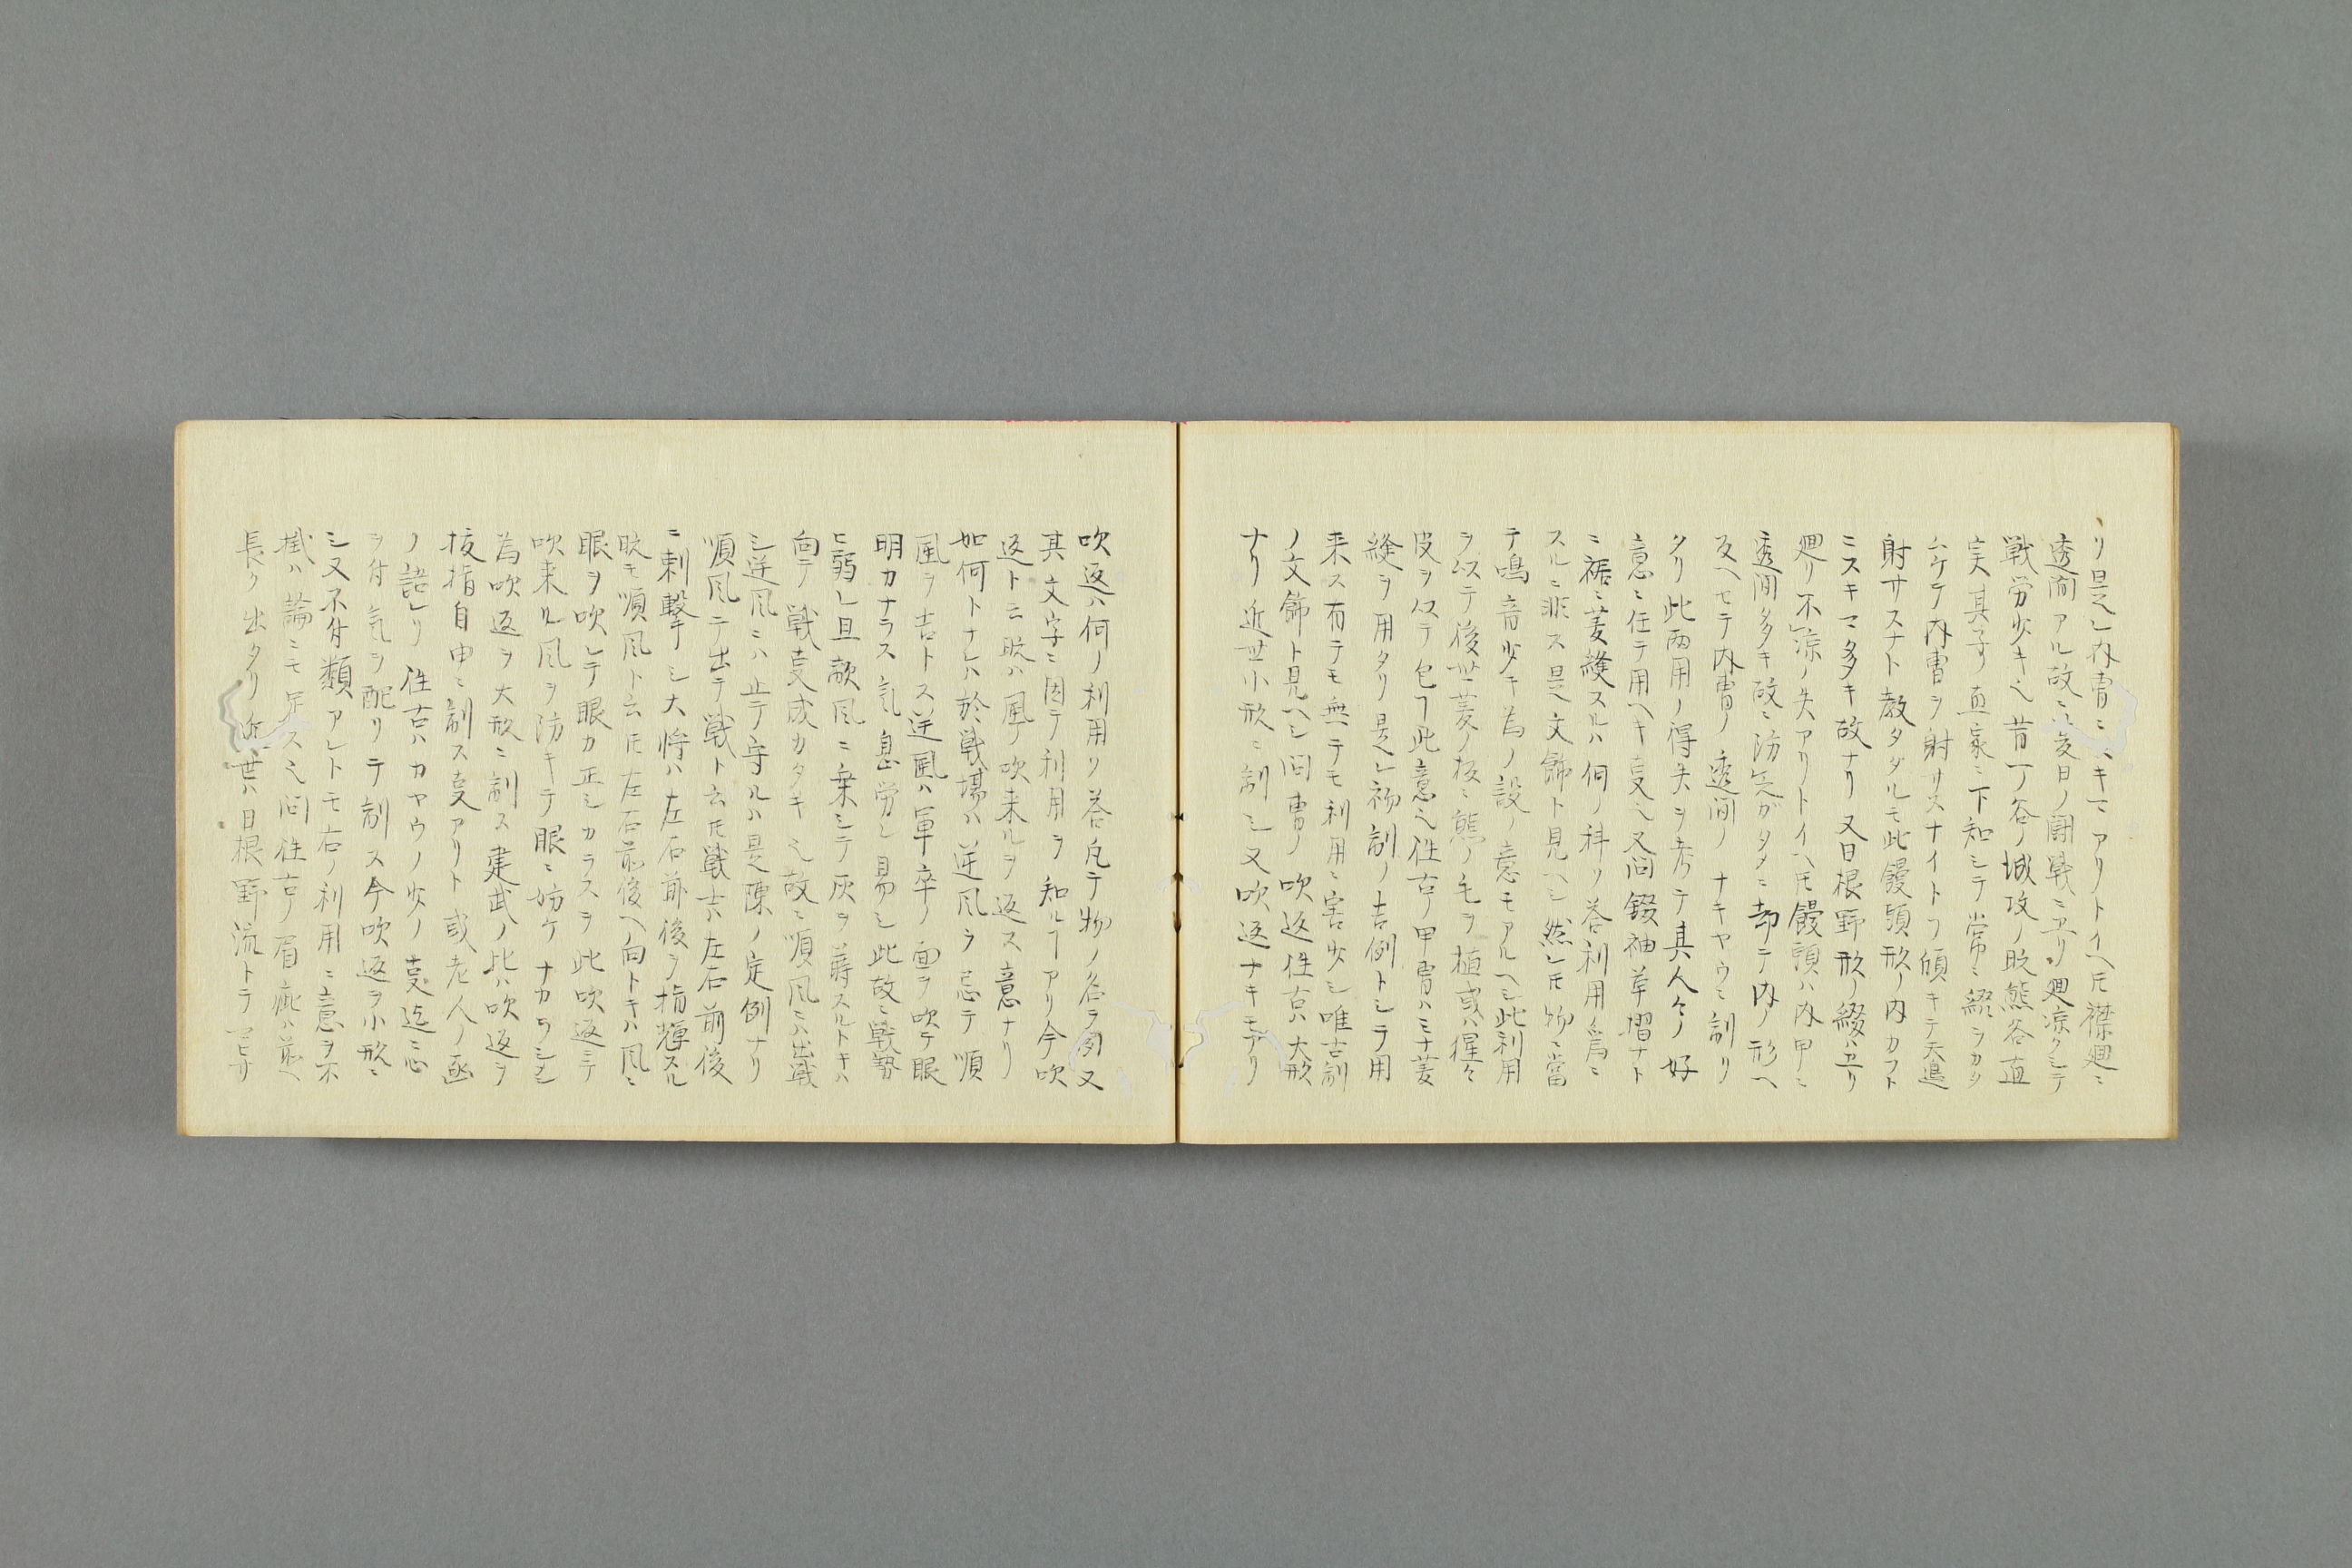 リ是レ内冑ニスキマアリトイヘ𪜈襟廻ニ
透間アル故ニ夏日ノ闘戦ニ立リ廻涼クシテ
戦労少キ也昔一ノ谷ノ城攻ノ時熊谷直
実其子ノ直家ニ下知シテ常ニ綴ヲカタ
ムケテ内冑ヲ射サスナイトフ傾キテ天邉
射サスナト教タダルモ此饅頭形ノ内カフト
ニスキマ多キ故ナリ又日根野形ノ綴ハ立リ
廻リ不涼ノ失アリトイヘ𪜈饅頭ハ内甲ニ
透間多キ故ニ防矢ガタメニ却テ内ノ形ヘ
反ヘセテ内冑ノ透間ノナキヤウニ制リ
タリ此両用ノ得失ヲ考テ其人々ノ好
意ニ任テ用ヘキ叓也又問錣袖草摺ナト
ニ裾ニ菱縫スルハ何ノ料ソ荅利用ノ為ニ
スルニ非ス是文飾ト見ヘシ然レ𪜈物ニ當
テ鳴音少キ為ノ設ノ意モアルヘシ此利用
ヲ以テ後世菱ノ板ニ熊ノ毛ヲ植或ハ猩々
皮ヲ以テ包ヿ此意也往古ノ甲冑ハミナ菱
縫ヲ用タリ是レ初制ノ吉例トシテ用
来ス有テモ無テモ利用ニ害少シ唯古制
ノ文飾ト見ヘシ問冑ノ吹返往古ハ大形
ナリ近世小形ニ制シ又吹返ナキモアリ
吹返ハ何ノ利用ソ荅凡テ物ノ名ヲ聞又
其文字ニ因テ利用ヲ知ルヿアリ今吹
返ト云時ハ風ノ吹来ルヲ返ス意ナリ
如何トナレハ於戦場ハ逆風ヲ忌テ順
風ヲ吉トス逆風ハ軍卒ノ面ヲ吹テ眼
明カナラス氣息労シ易シ此故ニ戦勢
ヒ弱レ且敵風ニ乗シテ灰ヲ蒔スルトキハ
向テ戦叓成カタキ也故ニ順風ニハ出戦
シ逆風ニハ止テ守ルハ是陳ノ定例ナリ
順風ニテ出テ戦ト云𪜈戦士ハ左右前後
ニ刺撃シ大将ハ左右前後ヲ指揮スル
時モ順風ト云𪜈左右前後ヘ向トキハ風ニ
眼ヲ吹レテ眼カ正シカラスヲ此吹返ニテ
吹来ル風ヲ防キテ眼ニ妨ケナカラシメン
為吹返ヲ大形ニ制ス建武ノ比ハ吹返ヲ
抜指自由ニ制ス叓アリト或老人ノ
ノ語レリ往古ハカヤウノ少ノ叓迄ニ心
ヲ付氣ヲ配リテ制ス今吹返ヲ小形ニ
シ又不付類アレトモ右ノ利用ニ意ヲ不
掛ハ論ニモ足ス也問往古ノ眉庇ハ前ヘ
長ク出タリ近世ハ日根野流トテ